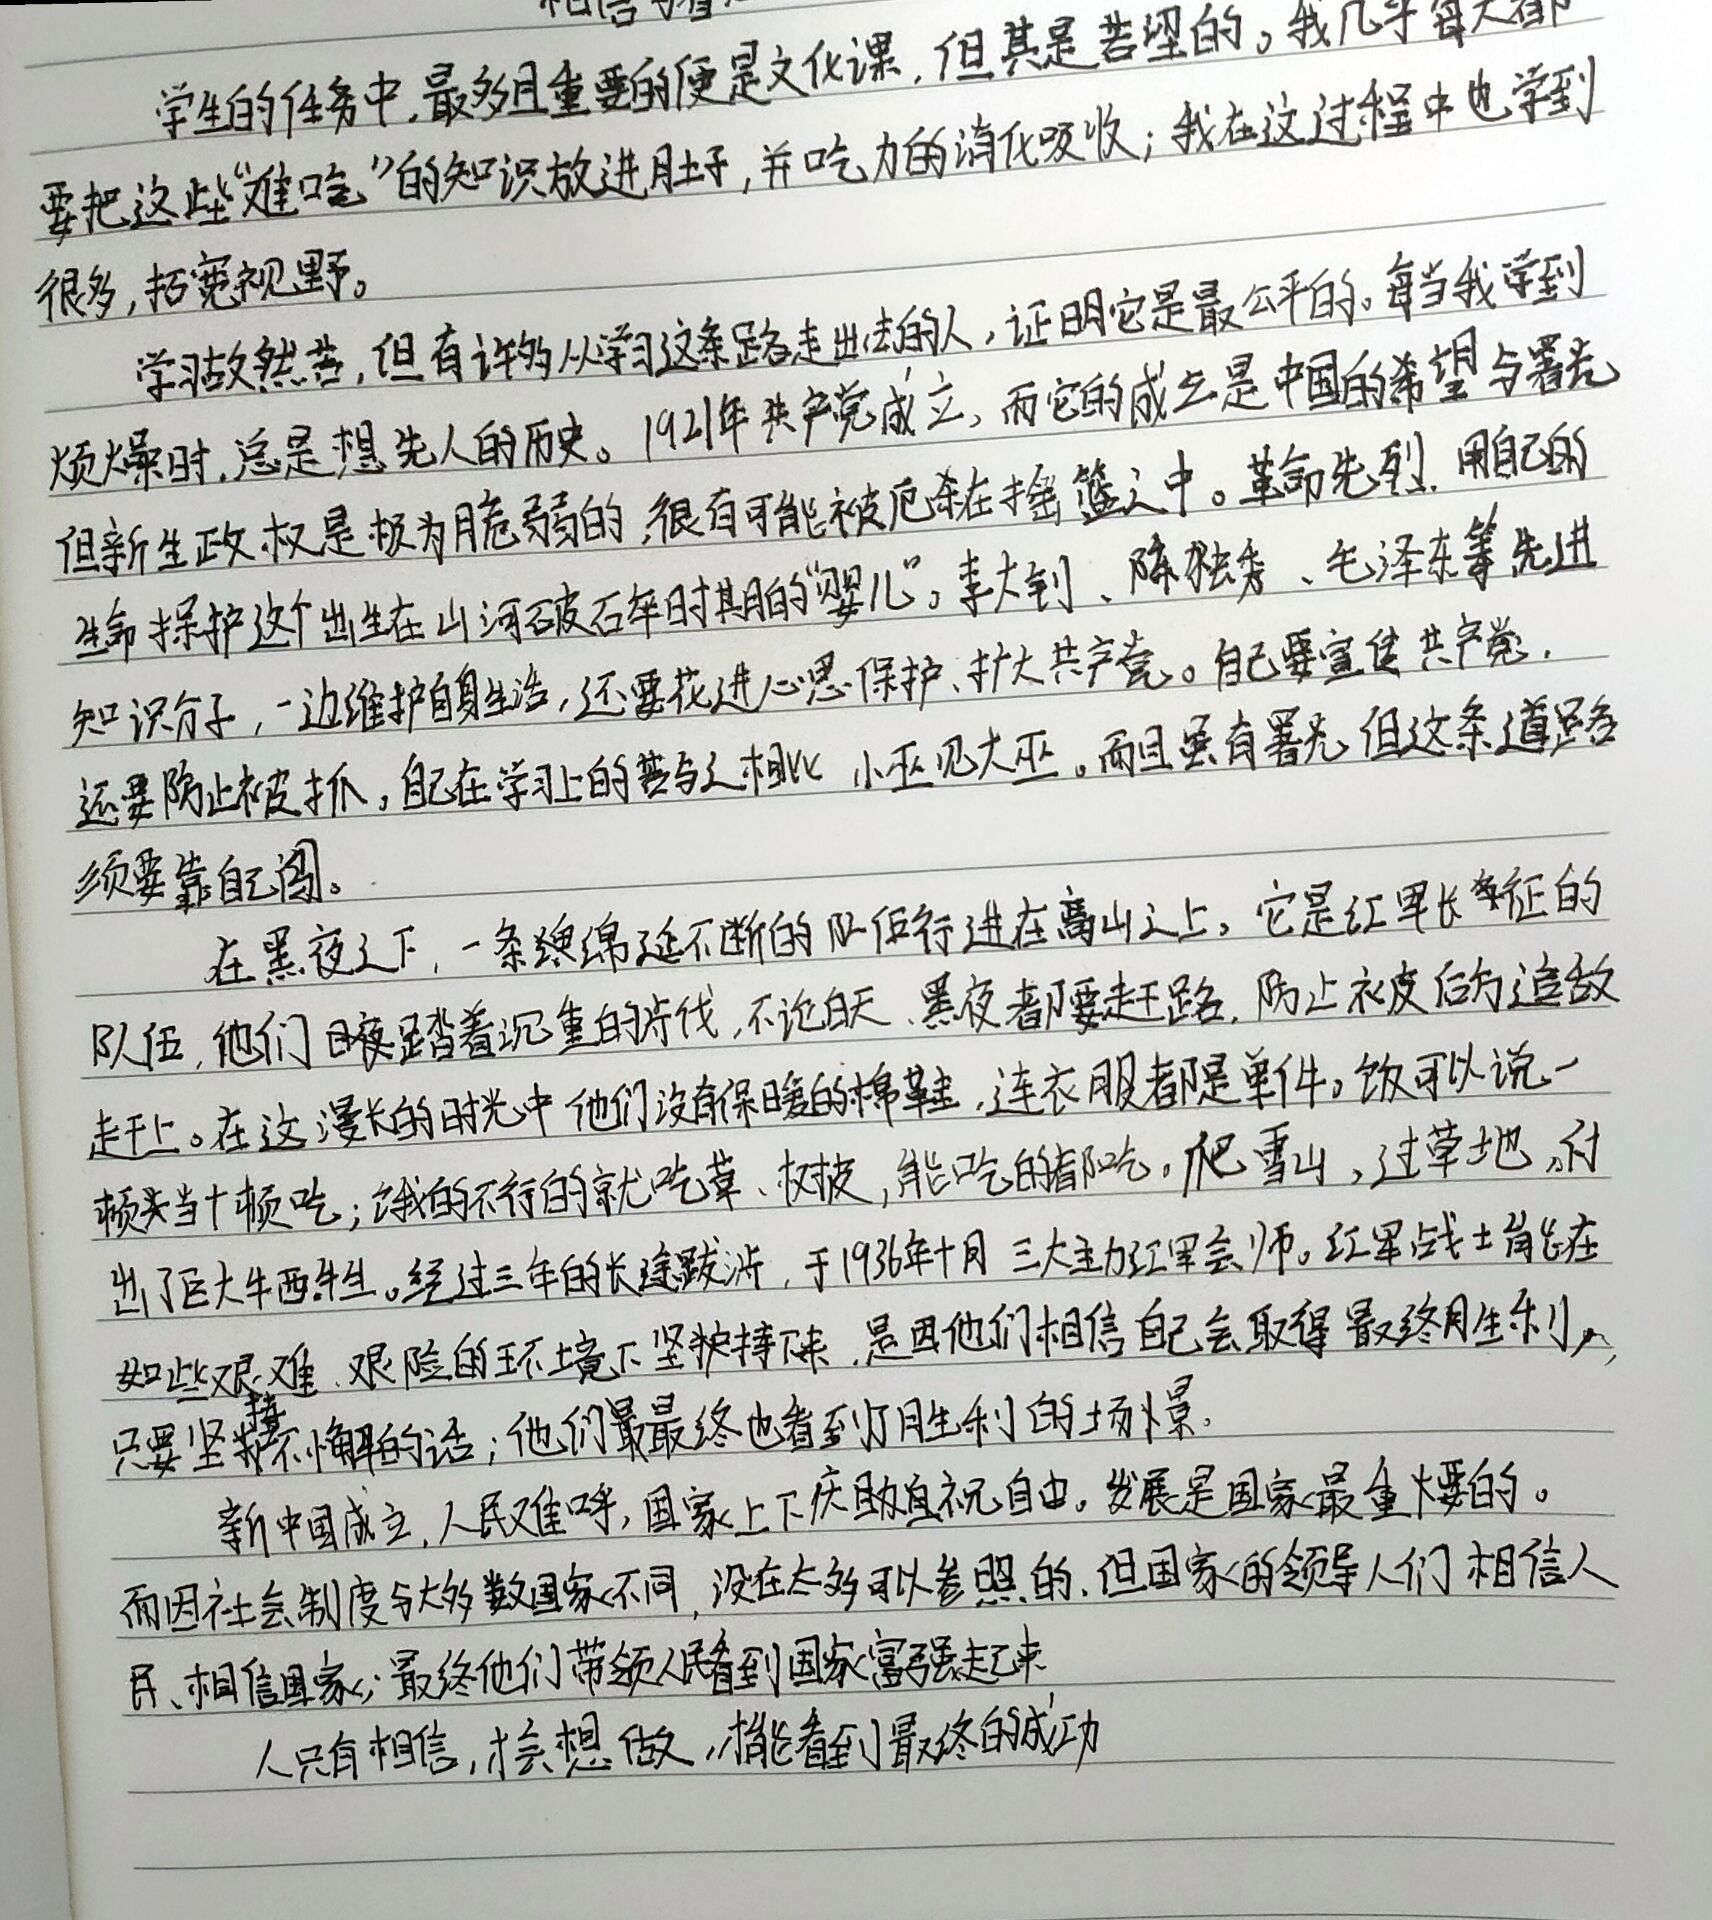 相信与看
学生的任务中,最多且重要的便是文化课,但其是苦涩的。我几乎每天都
要把这些“难吃”的知识放进肚子,并吃力的消化吸收;我在这过程中也学到
很多,拓宽视野。
学习故然苦,但有许多从学习这条路走出去的人,证明它是最公平的。每当我学到
烦燥时,总是想先人的历史。1921年共产党成立,而它的成立是中国的希望与署光
但新生政权是极为脆弱的,很有可能被厄杀在摇篮之中。革命先烈,用自己的
生命保护这个出生在山河破碎时期的“婴儿”。李大钊、陈独秀、毛泽东等先进
知识分子,一边维护自身生活,还要花进心思保护、扩大共产党。自己要宣传共产党,
还要防止被抓,自己在学习上的苦与之相比 小巫见大巫。而且虽有署光 但这条道路
须要靠自己闯。
在黑夜之下,一条绵延不断的队伍行进在高山之上。它是红军长征的
队伍,他们日夜踏着沉重的步伐,不论白天、黑夜都要赶路,防止被后方追敌
赶上。在这漫长的时光中 他们没有保暖的棉鞋,连衣服都是单件。饭可以说一
顿当十顿吃;饿的不行的就吃草、树皮,能吃的都吃。爬雪山,过草地,付
出了巨大牺牲。经过三年的长途跋涉,于1936年十月 三大主力红军会师。红军战士能在
如些艰难、艰险的环境下坚持下来,是因他们相信自己会取得最终胜利,
只要坚持不懈的话;他们最最终也看到了胜利的场景。
新中国成立,人民难呼,国家上下庆助自祝自由。发展是国家最重要的。
而因社会制度与大多数国家不同,没在太多可以参照的,但国家的领导人们 相信人
民、相信国家;最终他们带领人民看到国家富强起来
人只有相信,才会想做,才能看到最终的成功